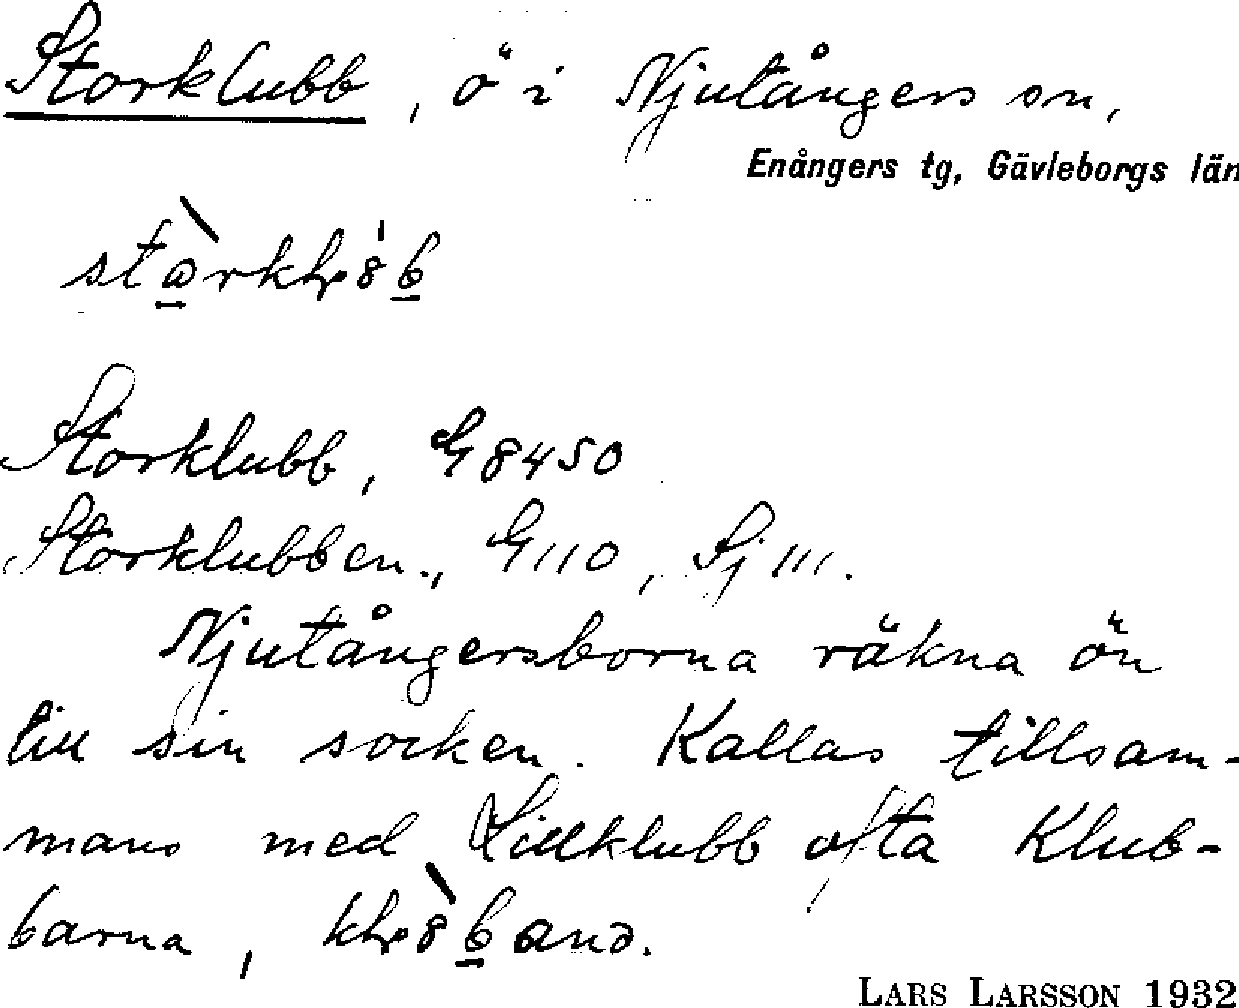 Storklubb, ö i Njutångers sn,
Enångers tg, Gävleborgs län
Storklubb, G 8450
Storklubben, G 110, Sj 111.
Njutångersborna räkna ön
till sin socken. Kallas tillsam-
mans med Lillklubb ofta Klub-
barna,
LARS LARSSON 1932